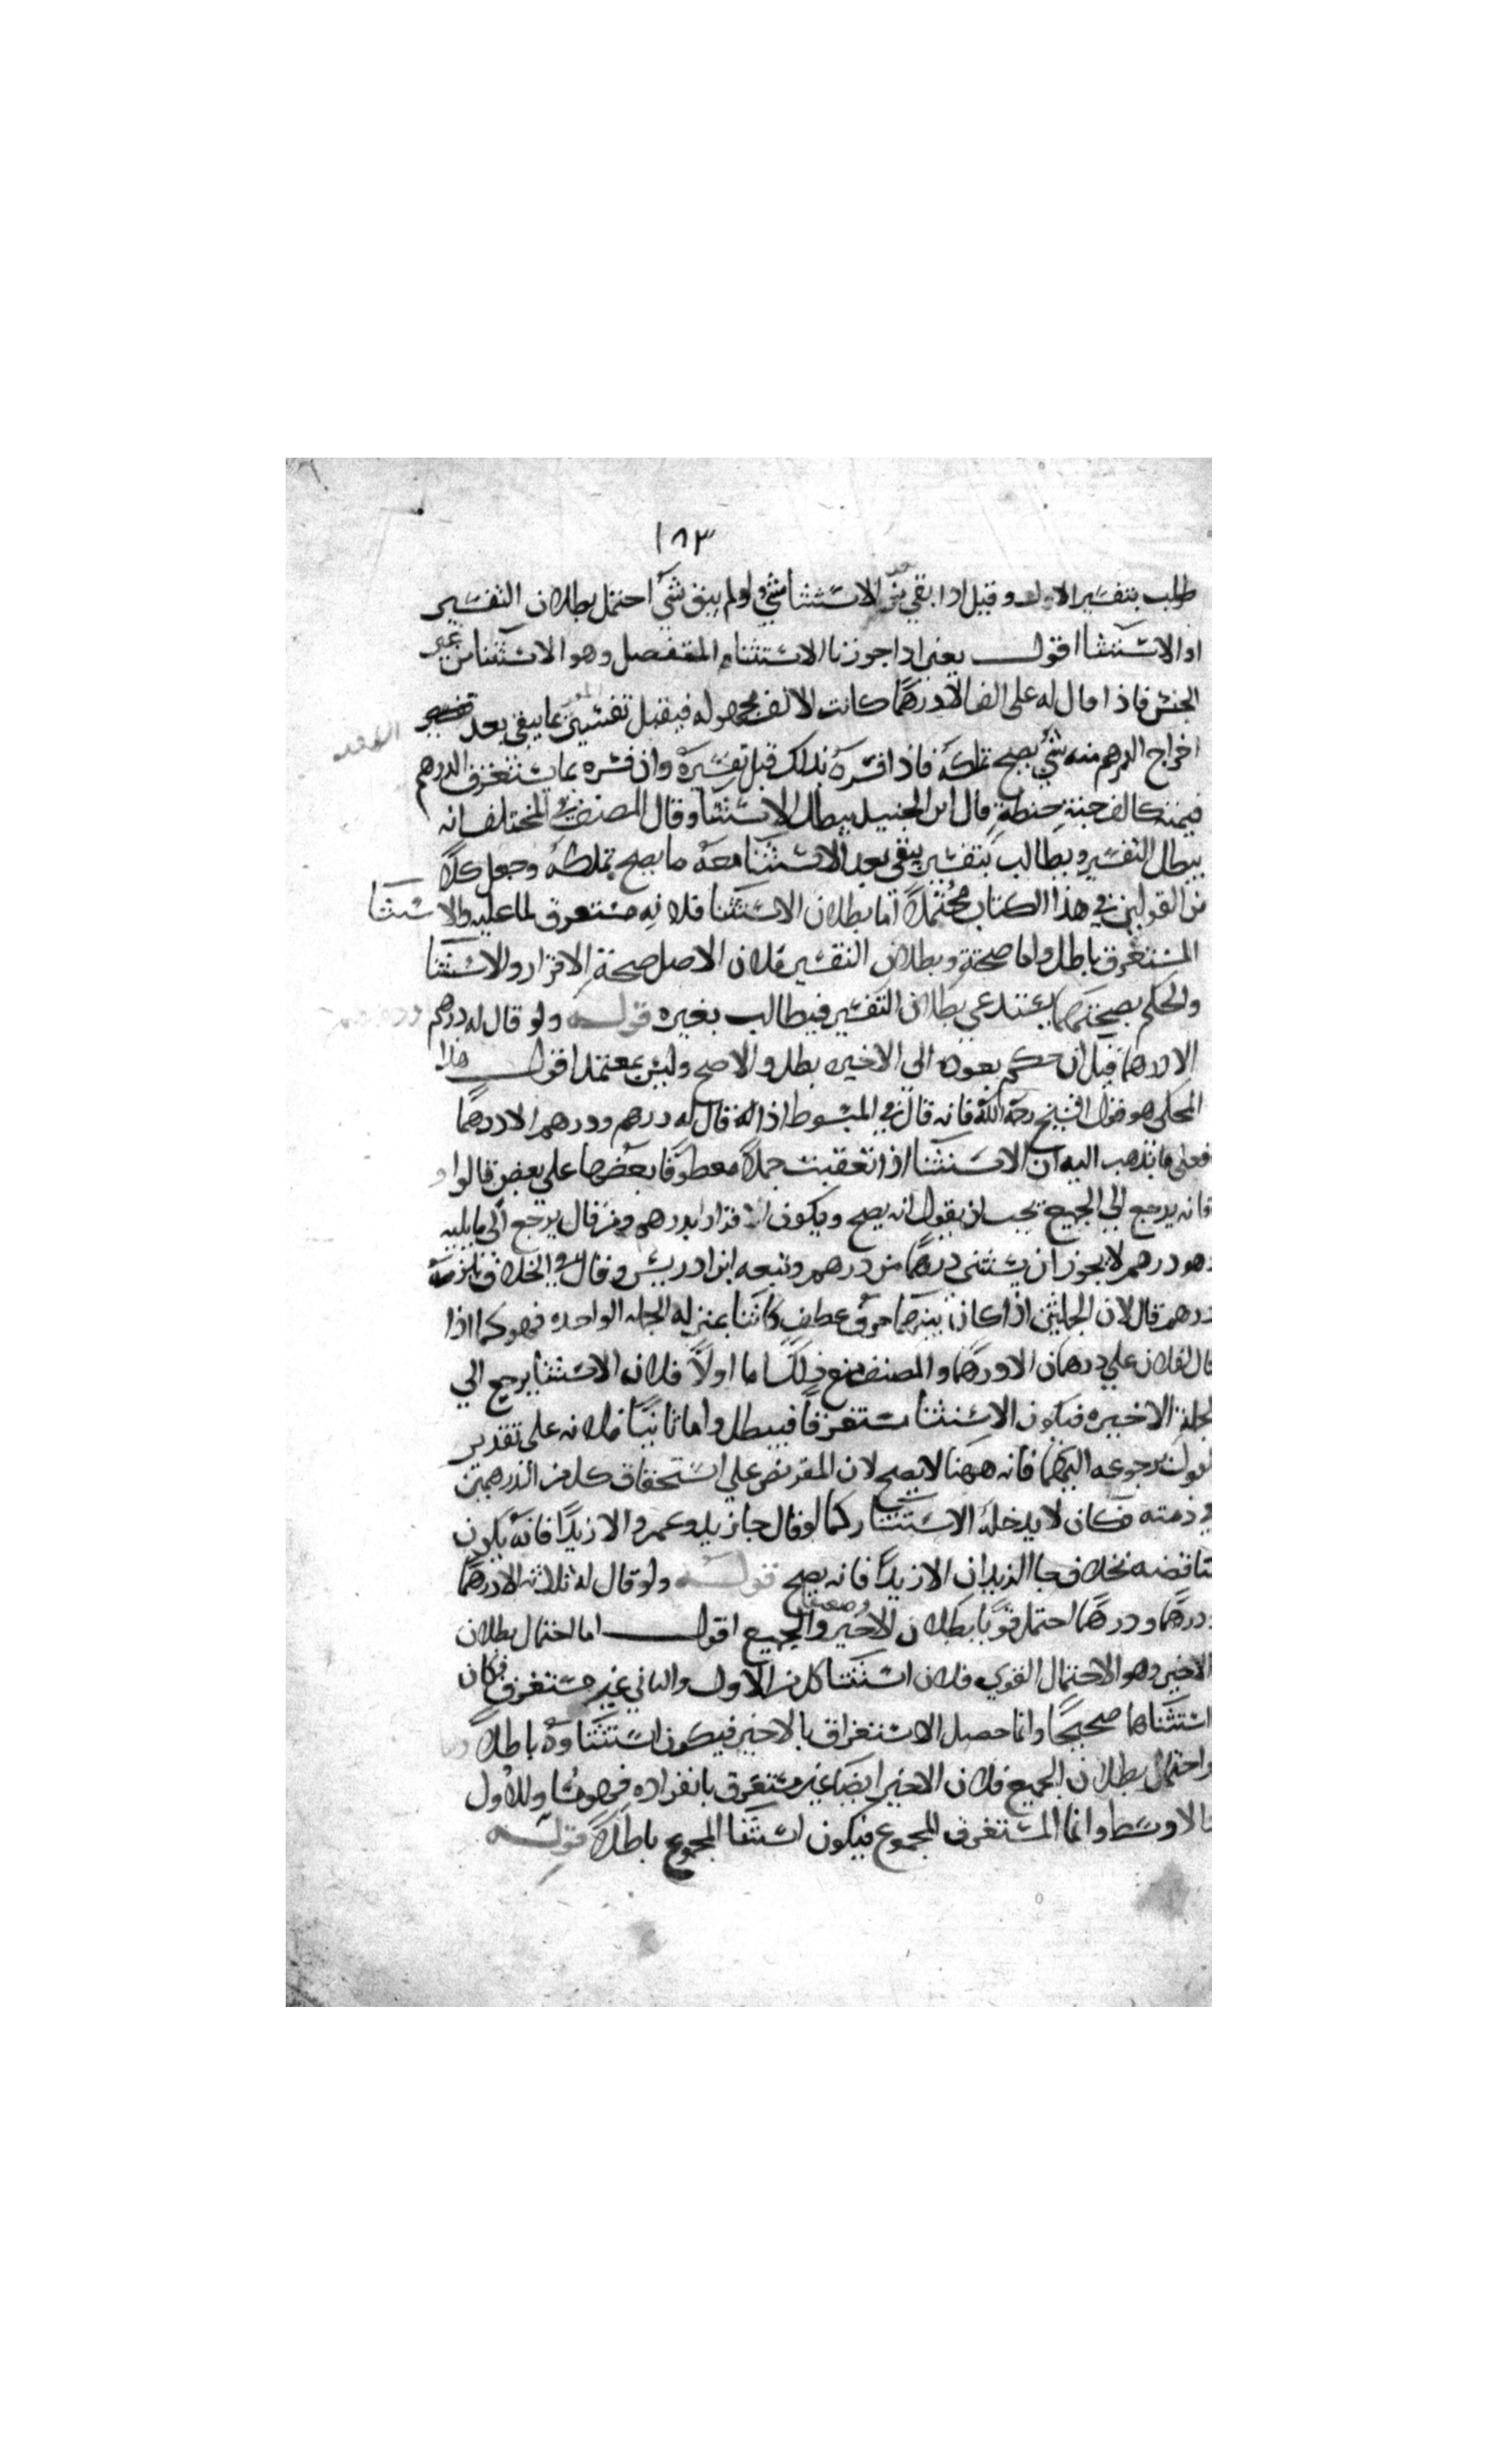 ١٨٣
طولب بتفسير الاول وقيل اذا بقي بعد الاستثنا شي ولو لم يبق شي احتمل بطلان التفسير
او الاستثنا اقول يعني اذا جوزنا الاستثنا المنفصل وهو الاستثنا من غير
الجنس فاذا قال له علي الف الا درهما كانت الالف مجهوله فيقبل تفسير بما يبقي بعد
اخراج الدرهم منه شي يصح تملكه فاذا فسره بذلك قبل تفسيره وان فسره بما يستغرق الدرهم
قيمته كالف حبة حنطة قال ابن الجنيد يبطل الاستثنا وقال المصنف في المختلف انه
يبطل التفسير ويطالب بتفسير يبقي بعد الاستثنا معه ما يصح تملكه وجعل كلا
من القولين في هذا الكتاب محتملا اما بطلان الاستثنا فلانه مستغرق لما عليه والاستثنا
المستغرق باطل واما صحته وبطلان التفسير فلان الاصل صحة الاقرار والاستثنا
والحكم بصحتهما يستدعي بطلان التفسير فيطالب بغيره قوله ولو قال له درهم ودرهم
الا درهما قيل ان حكم بعوده الي الاخير بطل والا صح وليس بمعتمد اقول هذا
المحكي هو قول الشيخ رحمة الله فانه قال في المبسوط اذا قال له درهم ودرهم الا درهما
فعلي ما يذهب اليه ان الاستثنا اذا تعقبت جملا معطوفا بعضها علي بعض قالوا و
فانه يرجع الي الجميع يجب ان يقول انه يصح ويكون اقرارا بدرهم ومن قال يرجع الي ما يليه
وهو درهم لا يجوز ان يستثني درهما من درهم وتبعه ابن ادريس وقال في الخلاف يلزمه
درهم قال لان الجملتين اذا كان بينهما حرف عطف كانتا بمنزله الجمله الواحده فهو كما اذا
قال لفلان علي درهمان الا درهما والمصنف منع ذلك اما اولا فلان الاستثنا يرجع الي
الجملة الاخيره فيكون الاستثنا مستغرقا فيبطل واما ثانيا فلانه علي تقدير
القول برجوعه اليهما فانه ههنا لا يصح لان المقر نص علي استحقاق كل من الدرهمين
في ذمته فكان لا يدخله الاستثنا كما لو قال جا زيد وعمرو الا زيدا فانه يكون
مناقضه بخلاف جا الزيدان الا زيدا فانه يصح قوله ولو قال له ثلاثه الا درهما
ودرهما ودرهما احتمل قويا بطلان الاخير وضعيفا الجميع اقول اما احتمال بطلان
الاخير وهو الاحتمال القوي فلان استثنا كل من الاول والثاني غير مستغرق فكان
استثناهما صحيحا وانما حصل الاستغراق بالاخير فيكون استثناوه باطلا
واحتمال بطلان الجميع فلان الاخير ايضا غير مستغرق بانفراده فهو مساو للاول
والاوسط وانما المستغرق المجموع فيكون استثنا المجموع باطلا قوله